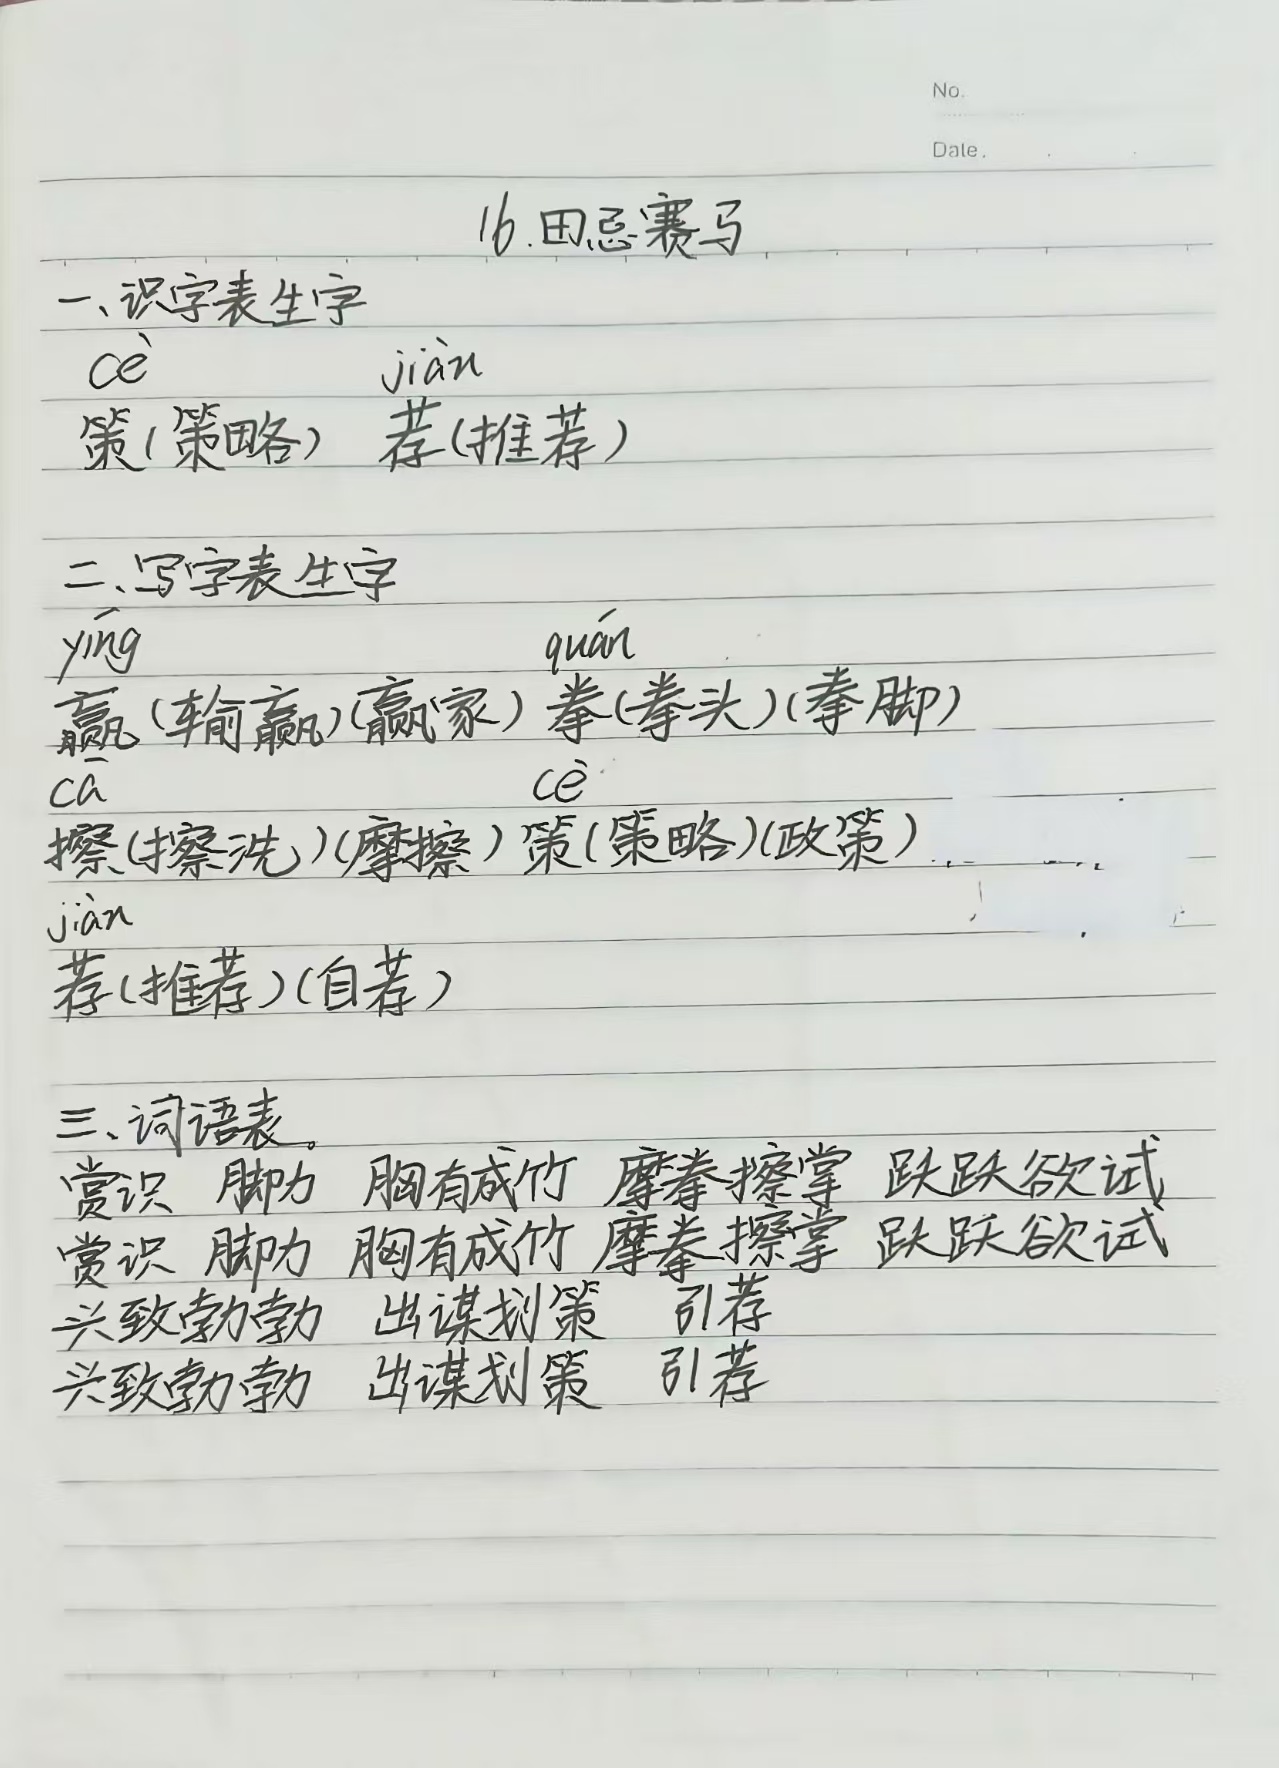 No.
Date.
16.田忌赛马
一、识字表生字
cè jiàn
策(策略) 荐(推荐)
二、写字表生字
yíng quán
赢(输赢)(赢家) 拳(拳头)(拳脚)
cā cè
擦(擦洗)(摩擦) 策(策略)(政策)
jiàn
荐(推荐)(自荐)
三、词语表。
赏识 脚力 胸有成竹 摩拳擦掌 跃跃欲试
赏识 脚力 胸有成竹 摩拳擦掌 跃跃欲试
兴致勃勃 出谋划策 引荐
兴致勃勃 出谋划策 引荐